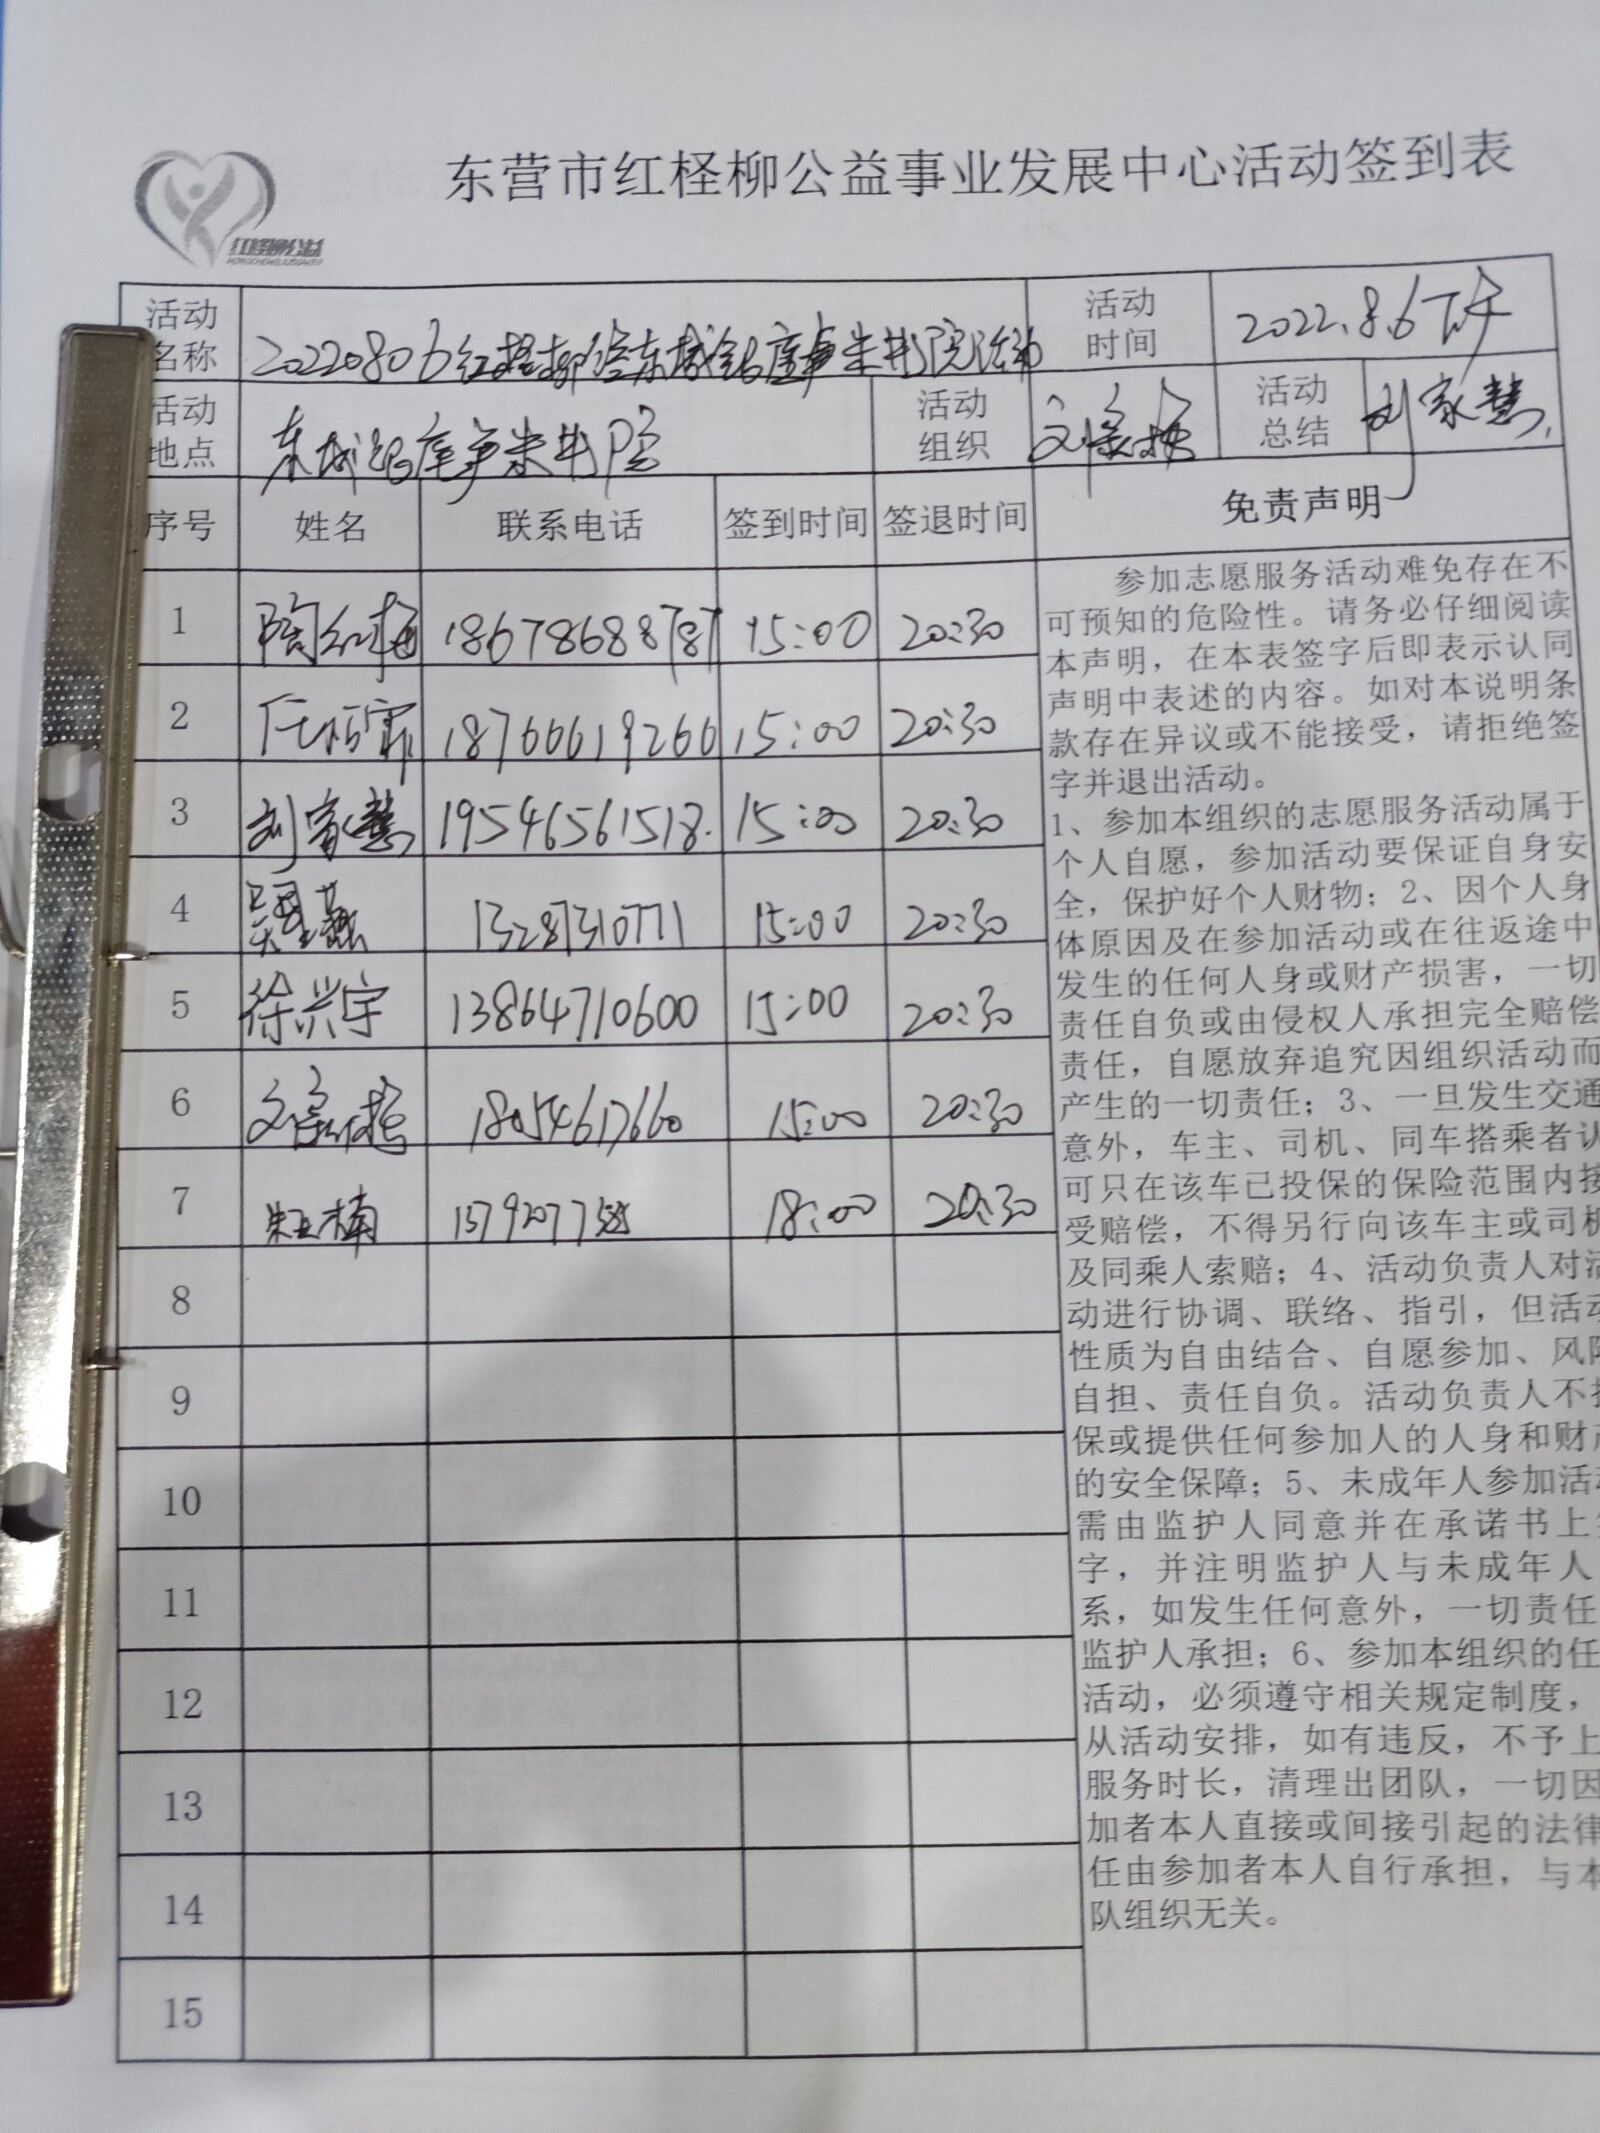 东营市红柽柳公益事业发展中心活动签到表
红柽柳公益
活动名称 20220806红柽柳 活动时间 2022.8.6下午
活动地点 活动组织 活动总结 刘家慧
序号 姓名 联系电话 签到时间 签退时间 免责声明
1 陶红梅 18678688787 15:00 20:30
2 18766619266 15:00 20:30
3 刘家慧 19546561518. 15:00 20:30
4 13287310771 15:00 20:30
5 徐兴宇 13864710600 15:00 20:30
6 18054617660 15:00 20:30
7 朱亚楠 18:00 20:30
8
9
10
11
12
13
14
15
参加志愿服务活动难免存在不
可预知的危险性。请务必仔细阅读
本声明，在本表签字后即表示认同
声明中表述的内容。如对本说明条
款存在异议或不能接受，请拒绝签
字并退出活动。
1、参加本组织的志愿服务活动属于
个人自愿，参加活动要保证自身安
全，保护好个人财物；2、因个人身
体原因及在参加活动或在往返途中
发生的任何人身或财产损害，一切
责任自负或由侵权人承担完全赔偿
责任，自愿放弃追究因组织活动而
产生的一切责任；3、一旦发生交通
意外，车主、司机、同车搭乘者认
可只在该车已投保的保险范围内接
受赔偿，不得另行向该车主或司机
及同乘人索赔；4、活动负责人对活
动进行协调、联络、指引，但活动
性质为自由结合、自愿参加、风险
自担、责任自负。活动负责人不担
保或提供任何参加人的人身和财产
的安全保障；5、未成年人参加活动
需由监护人同意并在承诺书上签
字，并注明监护人与未成年人
系，如发生任何意外，一切责任
监护人承担；6、参加本组织的任
活动，必须遵守相关规定制度，
从活动安排，如有违反，不予上
服务时长，清理出团队，一切因
加者本人直接或间接引起的法律
任由参加者本人自行承担，与本
队组织无关。